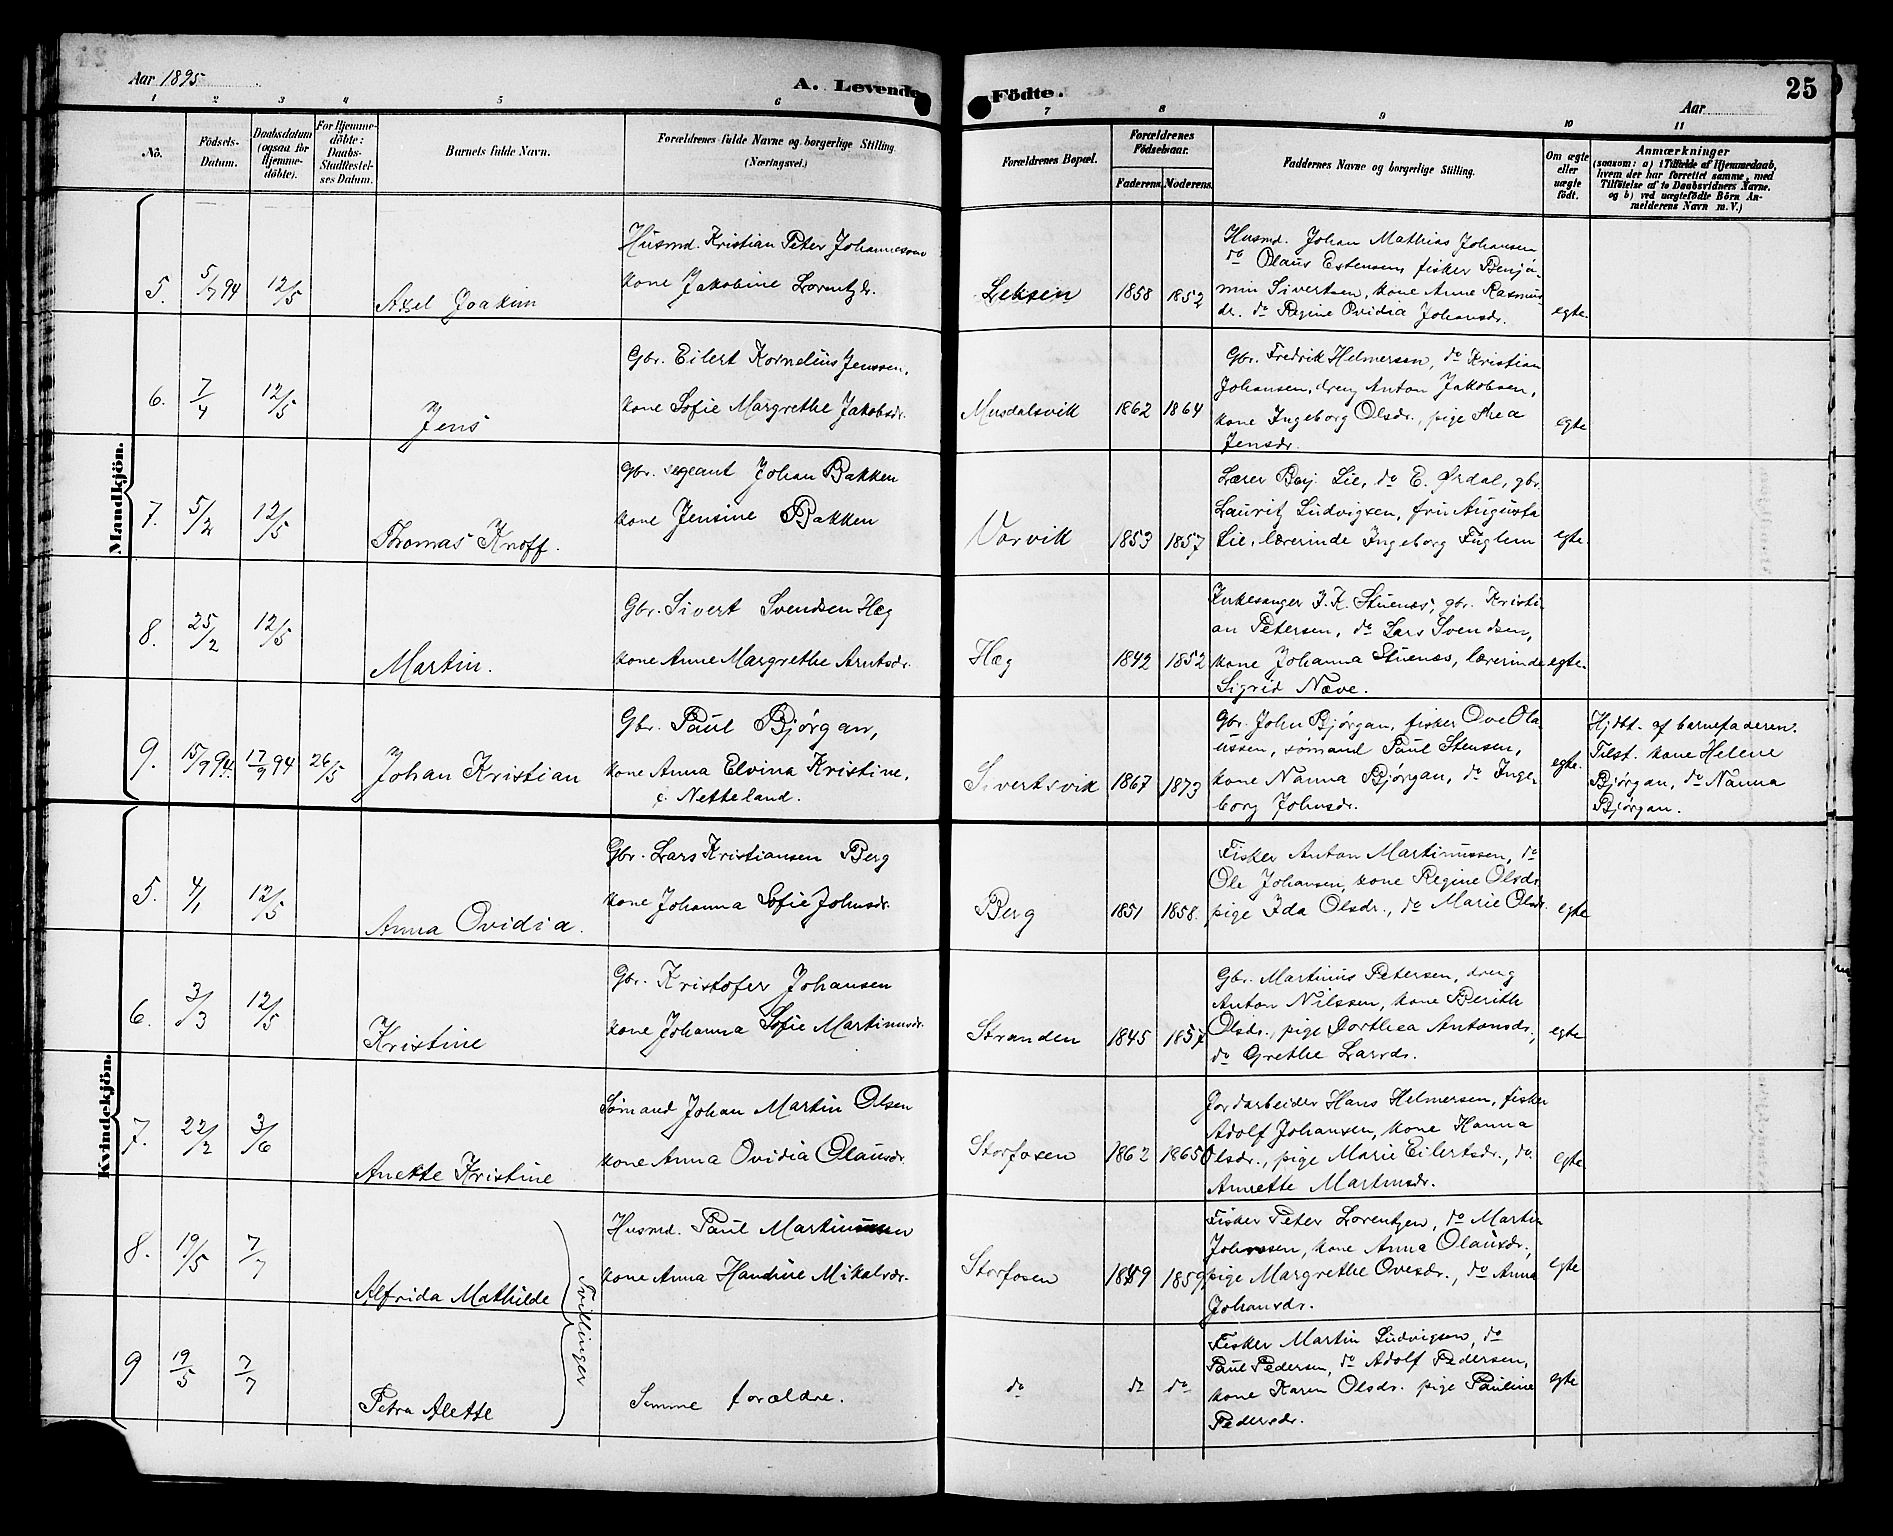 Aar 1895
A. Levende Födte.
25
Aar
1 2 3 4 5 6 7 8 9 10 11
No.
Födsels-
Datum.
Daabsdatum
(ogsaa for
Hjemme-
döbte).
For Hjemme-
döbte:
Daabs-
Stadfæstel-
ses Datum.
Barnets fulde Navn.
Forældrenes fulde Navne og borgerlige Stilling
(Næringsvei.)
Forældrenes Bopæl.
Forældrenes
Födselsaar.
Faderens. Moderens.
Faddernes Navne og borgerlige Stilling.
Om ægte
eller
uægte
födt.
Anmærkninger
(saasom: a) i Tilfælde af Hjemmedaab,
hvem der har forrettet samme, med
Tilföielse af to Daabsvidners Navne.
og b) ved uægtefödte Börn An-
melderens Navn m. V.)
Mandkjön.
5. 5/7 94 12/5 Axel Joakim
Husmd. Kristian Peter Johannessen
kone Jakobine Lorentzdr.
Leksen 1858 1852
Husmd. Johan Mathias Johansen
do Olaus Estensen, fisker Benja-
min Sivertsen, kone Anne Rasmus
dr. do Regine Ovidia Johansdr.
egte.
6. 7/4 12/5 Jens
Gbr. Eilert Kornelius Jenssen,
kone Sofie Margrethe Jakobsdr.
Musdalsvik 1862 1864
Gbr. Fredrik Helmersen, do Kristian
Johansen, dreng Anton Jakobsen,
kone Ingeborg Olsdr., pige Thea
Jensdr.
egte
7. 5/2 12/5 Thomas Knoff.
Gbr. segeant Johan Bakken
kone Jensine Bakken
Varvik 1853 1857
Lærer Benj. Lie, do E. Ørdal, gbr.
Lauritz Ludvigsen, fru Augusta
Lie, lærerinde Ingeborg Fuglem
egte.
8. 25/2 12/5 Martin.
Gbr. Sivert Svendsen Hæg
kone Anne Margrethe Arntsdr.
Hæg 1842 1852
Kirkesanger J. K. Stuenæs, gbr. Kristi-
an Petersen, do Lars Svendsen,
kone Johanna Stuenæs, lærerinde
Sigrid Næve.
egte.
9. 15/9 94. 17/9 94 26/5 Johan Kristian
Gbr. Paul Bjørgan,
kone Anna Elvina Kristine,
f. Netteland.
Sivertsvik 1867 1873
Gbr. John Bjørgan, fisker Ove Ola-
ussen, sømand Paul Stensen,
kone Nanna Bjørgan, do Inge-
borg Johnsdr.
egte.
Hjdbt. af barnefaderen.
Tilst. kone Helene
Bjørgan, do Nanna
Bjørgan.
Kvindekjön.
5. 4/1 12/5 Anna Ovidia.
Gbr. Lars Kristiansen Berg
kone Johanna Sofie Johnsdr.
Berg 1851 1858.
Fisker Anton Martinussen, do
Ole Johansen, kone Regine Olsdr.
pige Ida Olsdr., do Marie Olsdr.
egte
6. 3/3 12/5 Kristine
Gbr. Kristofer Johansen
kone Johanna Sofie Martinusdr.
Stranden 1845 1857
Gbr. Martinus Petersen, dreng
Anton Nilssen, kone Berith
Olsdr., pige Dorthea Antonsdr.,
do Grethe Larsdr.
egte
7. 22/2 3/6 Anette Kristine
Sømand Johan Martin Olsen
kone Anna Ovidia Olausdr.
Storfosen 1862 1865
Jordarbeider Hans Helmersen, fisker
Adolf Johansen, kone Hanna
Olsdr., pige Marie Eilertsdr., do.
Annette Martinsdr.
egte
8. 19/5 7/7 Alfrida Mathilde
Tvillinger
Husmd. Paul Martinussen
kone Anna Handine Mikalsdr.
Storfosen 1849 1859,
Fisker Peter Lorentzen, do Martin
Johnssen, kone Anna Olausdr.,
pige Margrethe Ovesdr., do Anna
Johansdr.
egte
9 19/5 7/7 Petra Alette
Samme forældre.
do do do
Fisker Martin Ludvigsen, do
Paul Pedersen, do Adolf Pedersen,
kone Karen Olsdr. pige Pauline
Pedersdr.
egte